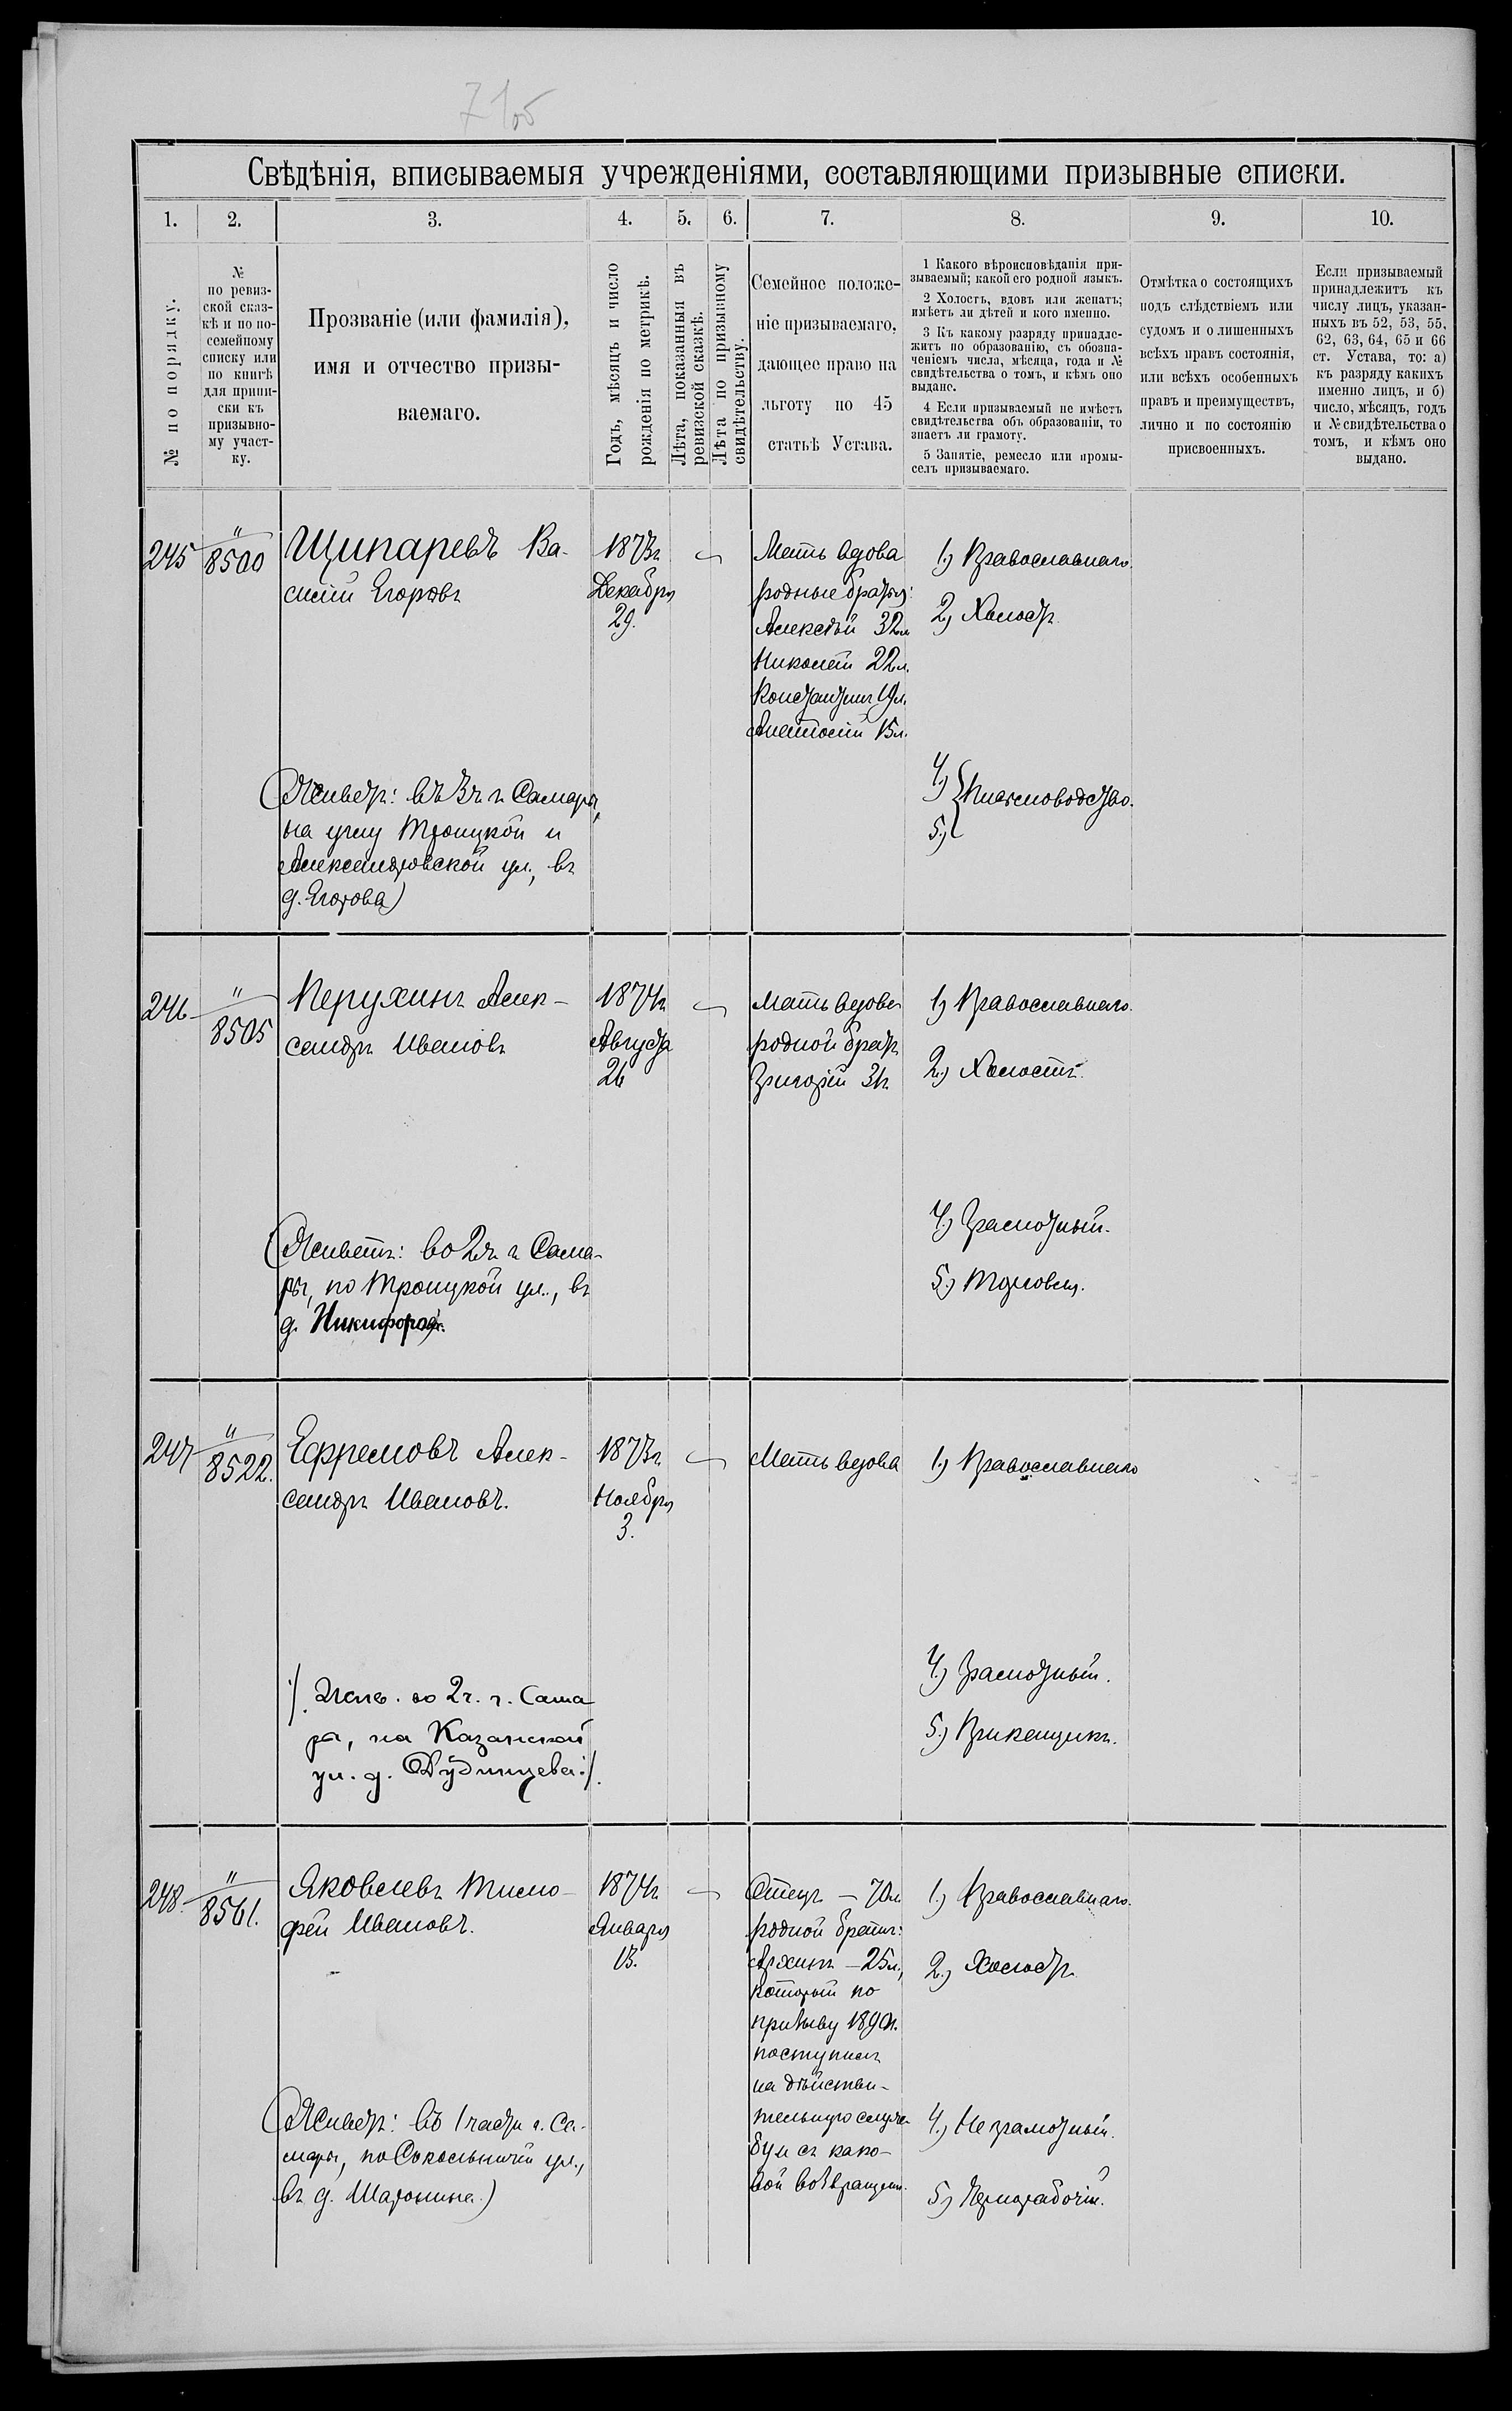 Свѣдѣнія, вписываемыя учрежденіями, составляющими призывные списки.
1. 2. 3. 4. 5. 6. 7. 8. 9. 10.
№ по порядку.
№
по ревиз-
ской сказ-
кѣ и по по-
семейному
списку или
по книгѣ
для припи-
ски къ
призывно-
му участ-
ку.
Прозваніе (или фамилія),
имя и отчество призы-
ваемаго.
Годъ, мѣсяцъ и число
рожденія по метрикѣ.
Лѣта, показанныя въ
ревизской сказкѣ.
Лѣта по призывному
свидѣтельству.
Семейное положе-
ніе призываемаго,
дающее право на
льготу по 45
статьѣ Устава.
1 Какого вѣроисповѣданія при-
зываемый; какой его родной языкъ.
2 Холостъ, вдовъ или женатъ;
имѣетъ ли дѣтей и кого именно.
3 Къ какому разряду принадле-
житъ по образованію, съ обозна-
ченіемъ числа, мѣсяца, года и №
свидѣтельства о томъ, и кѣмъ оно
выдано.
4 Если призываемый не имѣетъ
свидѣтельства объ образованіи, то
знаетъ ли грамоту.
5 Занятіе, ремесло или промы-
селъ призываемаго.
Отмѣтка о состоящихъ
подъ слѣдствіемъ или
судомъ и о лишенныхъ
всѣхъ правъ состоянія,
или всѣхъ особенныхъ
правъ и преимуществъ,
лично и по состоянію
присвоенныхъ.
Если призываемый
принадлежитъ къ
числу лицъ, указан-
ныхъ въ 52, 53, 55,
62, 63, 64, 65 и 66
ст. Устава, то: а)
къ разряду какихъ
именно лицъ, и б)
число, мѣсяцъ, годъ
и № свидѣтельства о
томъ, и кѣмъ оно
выдано.
245
"
8500
Щипаревъ Ва-
силій Егоровъ
(Живетъ: въ 3 ч. г. Самары,
на углу Троицкой и
Александровской ул., въ
д. Егорова)
1873 г.
Декабря
29.
Мать вдова
родные братья:
Алексѣй 32 л.
Николай 22 л.
Константинъ 19 л.
Анатолій 15 л.
1) Православнаго.
2) Холостъ
4)
5)
246
"
8505
Перухинъ Алек-
сандръ Ивановъ
(Живетъ: во 2 ч. г. Сама-
ры, по Троицкой ул., въ
д. Никифорова.
1874 г.
Августа
26
Мать вдова
родной братъ
Григорій 31 г.
1) Православнаго.
2.) Холостъ.
4.) Грамотный.
5.) Торговля.
247
"
8522.
Ефремовъ Алек-
сандръ Ивановъ.
/: Жив. во 2 ч. г. Сама
ры, на Казанской
ул. д. :/.
1873 г.
Ноября
3.
Мать вдова
1.) Православнаго
4.) Грамотный.
5.) Прикащикъ.
248.
"
8561.
Яковлевъ Тимо-
фей Ивановъ.
(Живетъ: въ 1 части г. Са-
мары, по Сокольничій ул.,
въ д. Шаронина.)
1874 г.
Января
13.
Отецъ – 70 л.
родной братъ:
Архипъ – 25 л.,
который по
призыву 1890 г.
поступилъ
на дѣйстви-
тельную служ-
бу и съ како-
вой возвращенъ.
1.) Православнаго.
2.) Холостъ
4.) Неграмотный.
5.) Чернорабочій.